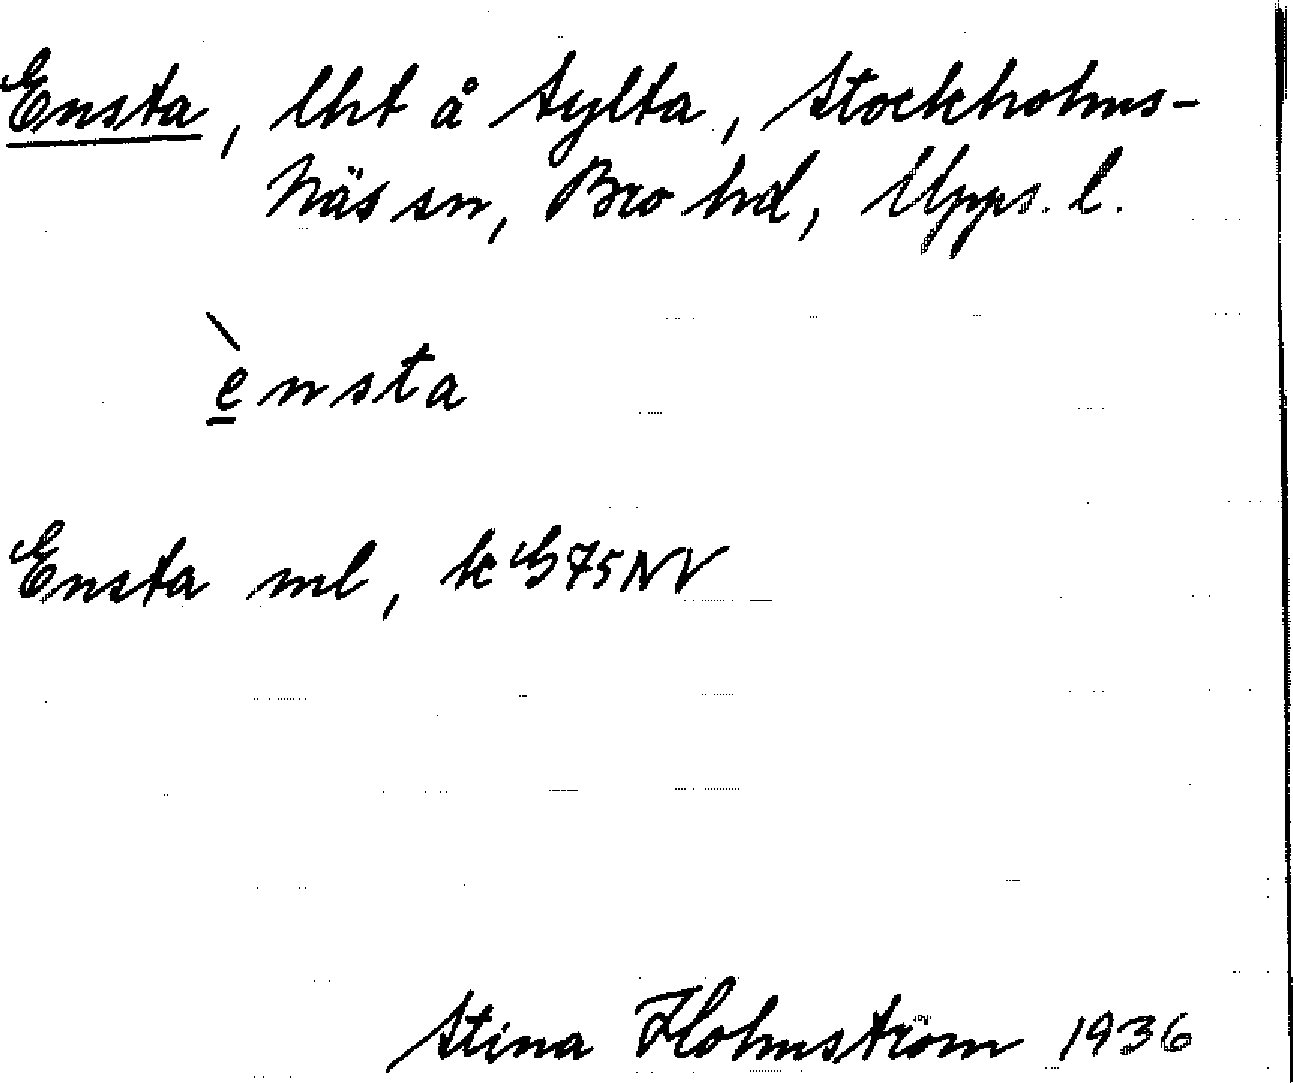 Ensta, lht å Sylta, Stockholms-
Näs sn, Bro hd, Upps. l.
èn̲sta
Ensta ml, k G75NV
Stina Holmström 1936